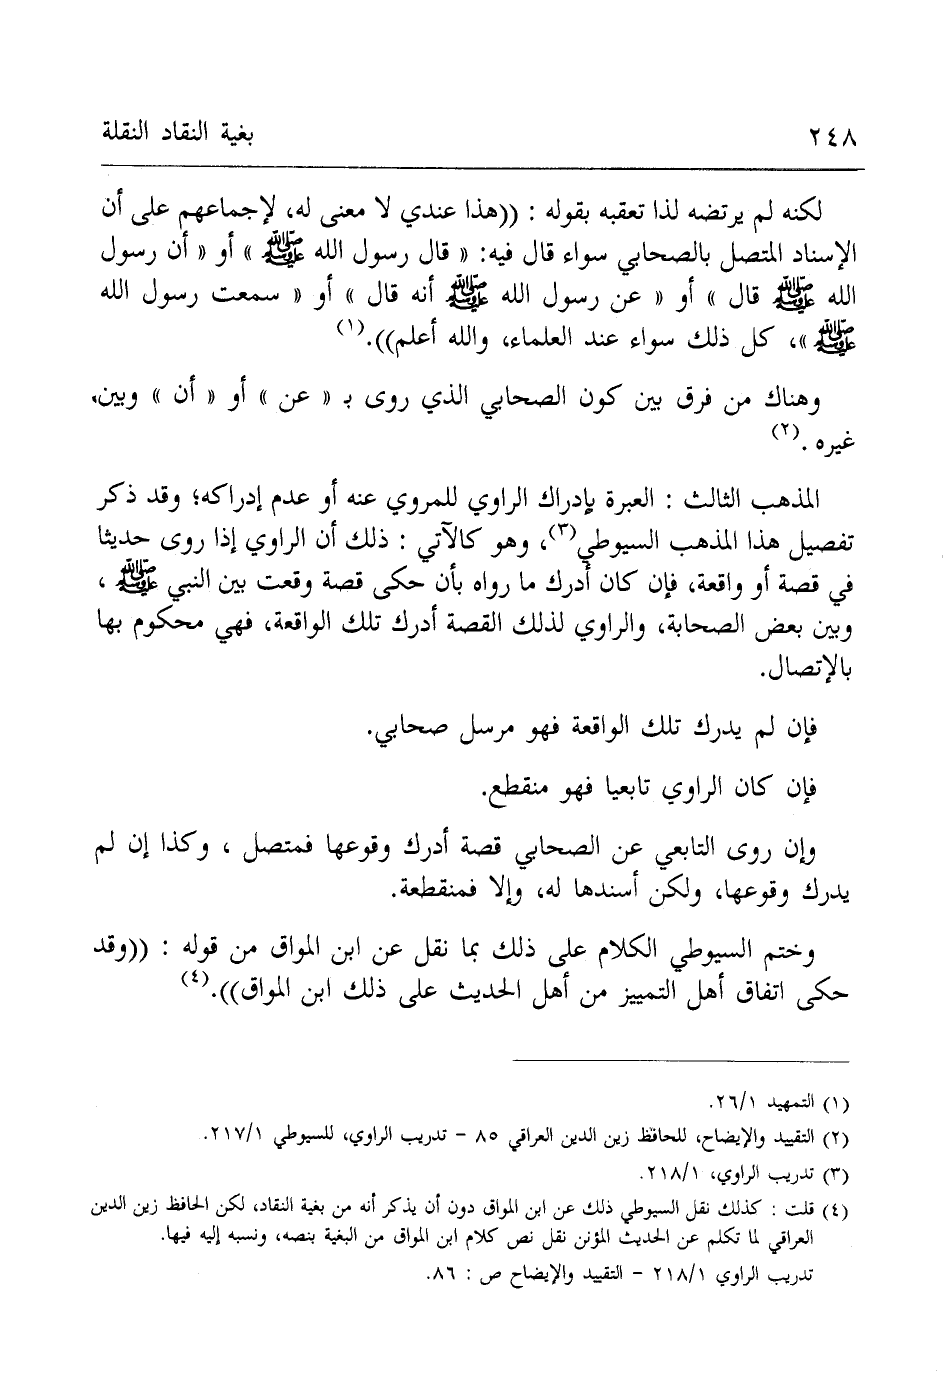 ٢٤٨ بغية النقاد النقلة
لكنه لم يرتضه لذا تعقبه بقوله : ((هذا عندي لا معنى له، لإجماعهم على أن
الإسناد المتصل بالصحابي سواء قال فيه: « قال رسول الله ﷺ » أو « أن رسول
الله ﷺ قال » أو « عن رسول الله ﷺ أنه قال » أو « سمعت رسول الله
ﷺ »، كل ذلك سواء عند العلماء، والله أعلم)).(١)
وهناك من فرق بين كون الصحابي الذي روى بـ « عن » أو « أن » وبين،
غيره .(٢)
المذهب الثالث : العبرة بإدراك الراوي للمروي عنه أو عدم إدراكه؛ وقد ذكر
تفصيل هذا المذهب السيوطي(٣)، وهو كالآتي : ذلك أن الراوي إذا روى حديثا
في قصة أو واقعة، فإن كان أدرك ما رواه بأن حكى قصة وقعت بين النبي ﷺ ،
وبين بعض الصحابة، والراوي لذلك القصة أدرك تلك الواقعة، فهي محكوم بها
بالإتصال.
فإن لم يدرك تلك الواقعة فهو مرسل صحابي.
فإن كان الراوي تابعيا فهو منقطع.
وإن روى التابعي عن الصحابي قصة أدرك وقوعها فمتصل ، وكذا إن لم
يدرك وقوعها، ولكن أسندها له، وإلا فمنقطعة.
وختم السيوطي الكلام على ذلك بما نقل عن ابن المواق من قوله : ((وقد
حكى اتفاق أهل التمييز من أهل الحديث على ذلك ابن المواق)).(٤)
(١) التمهيد ٢٦/١.
(٢) التقييد والإيضاح، للحافظ زين الدين العراقي ٨٥ - تدريب الراوي، للسيوطي ٢١٧/١.
(٣) تدريب الراوي، ٢١٨/١.
(٤) قلت : كذلك نقل السيوطي ذلك عن ابن المواق دون أن يذكر أنه من بغية النقاد، لكن الحافظ زين الدين
العراقي لما تكلم عن الحديث المؤنن نقل نص كلام ابن المواق من البغية بنصه، ونسبه إليه فيها.
تدريب الراوي ٢١٨/١ - التقييد والإيضاح ص : ٨٦.